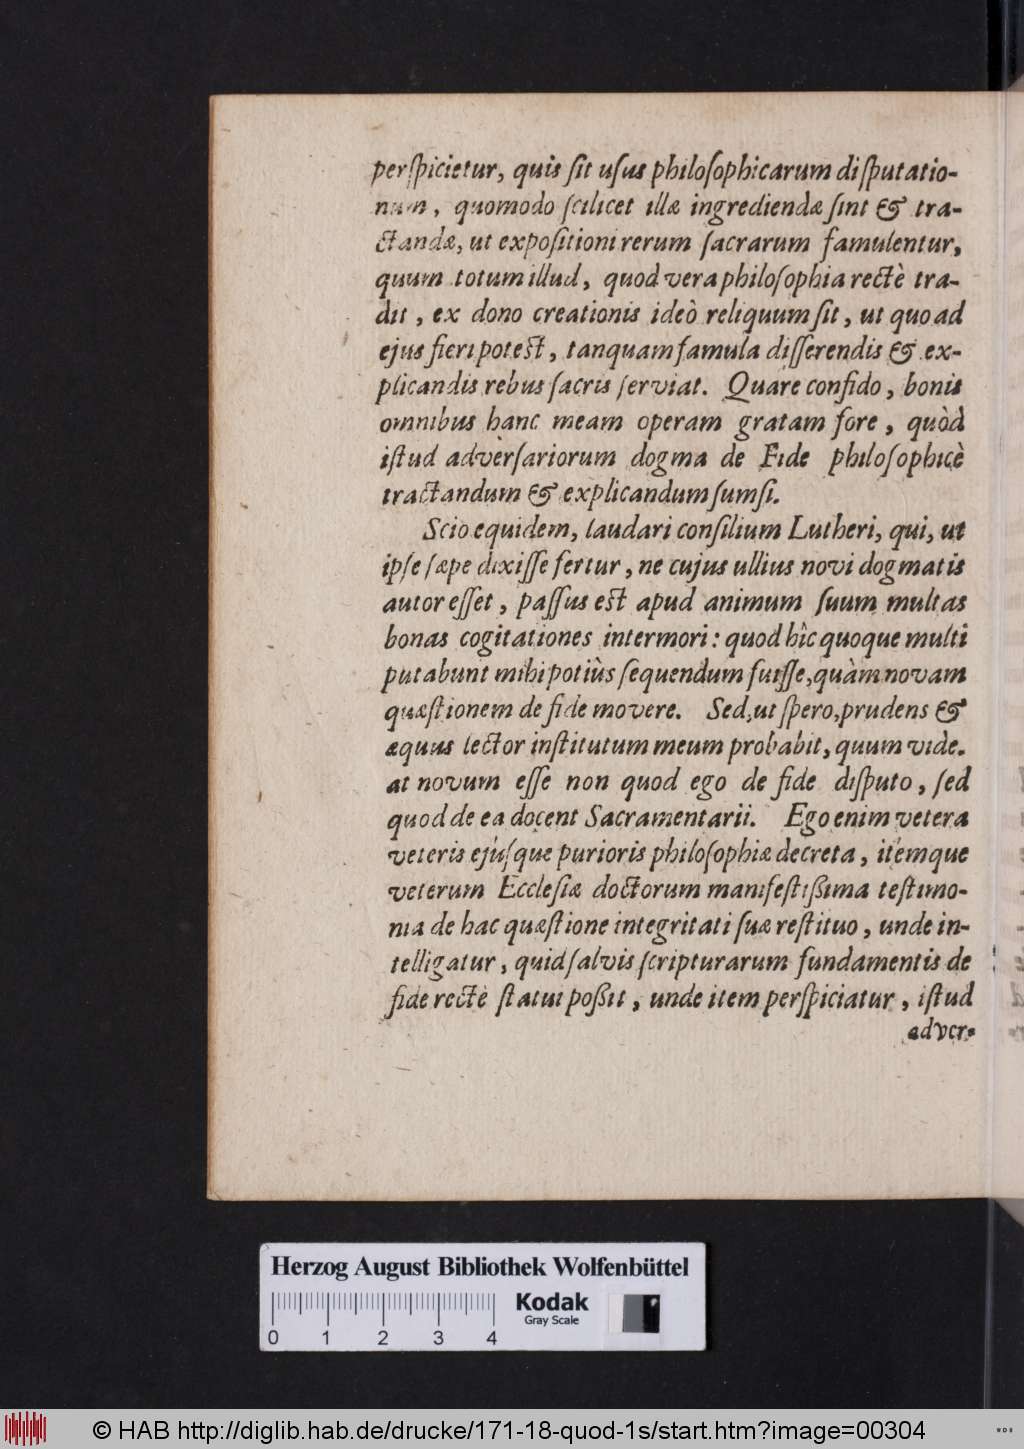 perſpicietur, quis ſit uſus philoſophicarum diſputatio-
num, quomodo ſcilicet illæ ingrediendæ ſint & tra-
ctandæ, ut expoſitioni rerum ſacrarum famulentur,
quum totum illud, quod vera philoſophia rectè tra-
dit, ex dono creationis ideò reliquum ſit, ut quoad
ejus fieri poteſt, tanquam famula diſſerendis & ex-
plicandis rebus ſacris ſerviat. Quare confido, bonis
omnibus hanc meam operam gratam fore, quòd
iſtud adverſariorum dogma de Fide philoſophicè
tractandum & explicandum ſumſi.
Scio equidem, laudari conſilium Lutheri, qui, ut
ipſe ſæpe dixiſſe fertur, ne cujus ullius novi dogmatis
autor eſſet, paſſus eſt apud animum ſuum multas
bonas cogitationes intermori: quod hîc quoque multi
putabunt mihi potiùs ſequendum fuiſſe, quàm novam
quæſtionem de fide movere. Sed, ut ſpero, prudens &
æquus lector inſtitutum meum probabit, quum vide.
at novum eſſe non quod ego de fide diſputo, ſed
quod de ea docent Sacramentarii. Ego enim vetera
veteris ejuſque purioris philoſophiæ decreta, itemque
veterum Eccleſiæ doctorum manifeſtißima teſtimo-
nia de hac quæſtione integritati ſuæ reſtituo, unde in-
telligatur, quid ſalvis ſcripturarum fundamentis de
fide rectè ſtatui poßit, unde item perſpiciatur, iſtud
adver-
Herzog August Bibliothek Wolfenbüttel
Kodak
Gray Scale
0 1 2 3 4
© HAB http://diglib.hab.de/drucke/171-18-quod-1s/start.htm?image=00304